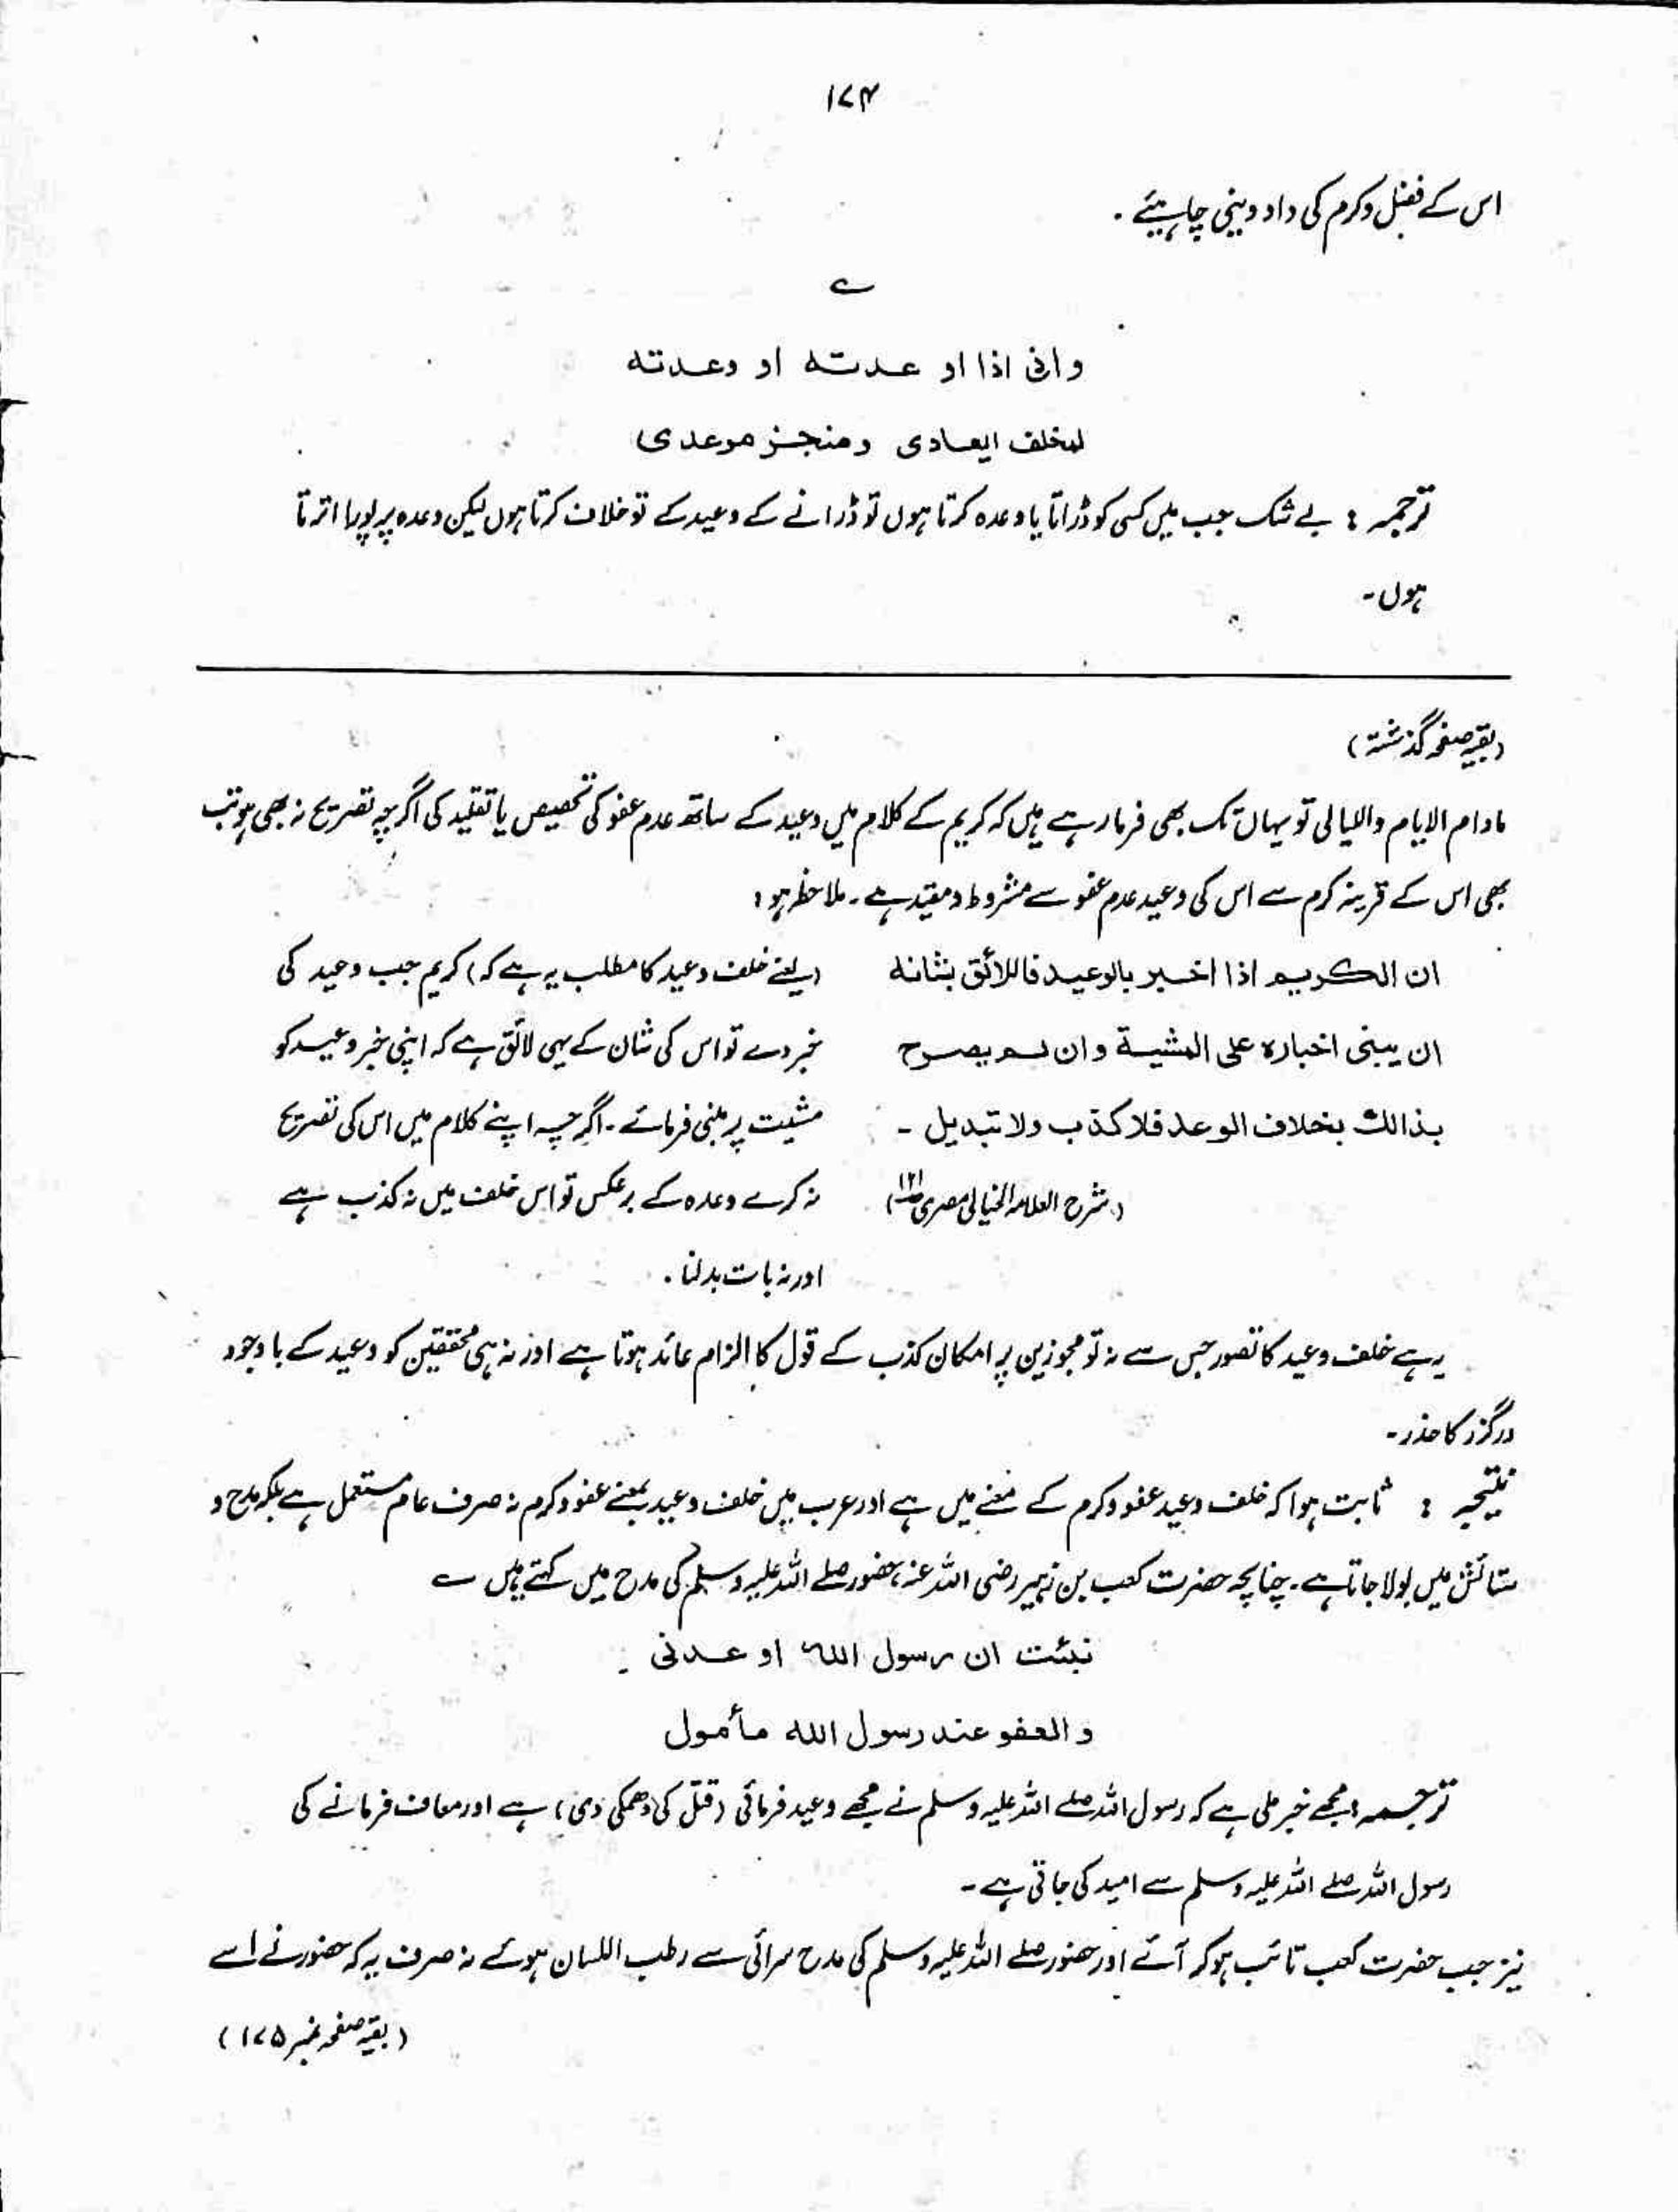 ۱۷۴
اس کے فضل وکرم کی داد دینی چاہیئے ۔
ے
وانی اذا او عدته او وعدته
لمخلف ایعادی ومنجز موعدی
ترجمہ : بے شک جب میں کسی کو ڈراتا یا وعدہ کرتا ہوں تو ڈرانے کے وعید کے تو خلاف کرتا ہوں لیکن وعدہ پر پورا اترتا
ہوں ۔
(بقیہ صفحہ گذشتہ)
مادام الایام واللیالی تو یہاں تک بھی فرما رہے ہیں کہ کریم کے کلام میں وعید کے ساتھ عدم عفو کی تخصیص یا تقلید کی اگرچہ تصریح نہ بھی ہو تب
بھی اس کے قرینہ کرم سے اس کی وعید عدم عفو سے مشروط و مقید ہے ۔ ملاحظہ ہو :
ان الکریم اذا اخبر بالوعید فاللائق بشانه
ان یبنی اخباره علی المشیة وان لم یصرح
بذالك بخلاف الوعد فلا کذب ولا تبدیل ۔
(شرح العلامہ الخیالی مصری ص۱۲۱)
(یعنے خلف وعید کا مطلب یہ ہے کہ) کریم جب وعید کی
خبر دے تو اس کی شان کے یہی لائق ہے کہ اپنی خبر وعید کو
مشیت پر مبنی فرمائے ۔ اگرچہ اپنے کلام میں اس کی تصریح
نہ کرے وعدہ کے برعکس تو اس خلف میں نہ کذب ہے
اور نہ بات بدلنا ۔
یہ ہے خلف وعید کا تصور جس سے نہ تو مجوزین پر امکان کذب کے قول کا الزام عائد ہوتا ہے اور نہ ہی محققین کو وعید کے باوجود
درگزر کا حذر ۔
نتیجہ : ثابت ہوا کہ خلف وعید عفو و کرم کے معنے میں ہے اور عرب میں خلف وعید بمعنے عفو و کرم نہ صرف عام مستعمل ہے بلکہ مدح و
ستائش میں بولا جاتا ہے ۔ چنانچہ حضرت کعب بن زہیر رضی اللہ عنہ، حضور صلے اللہ علیہ وسلم کی مدح میں کہتے ہیں ے
نبئت ان رسول الله او عدنی
والعفو عند رسول الله مأمول
ترجمہ : مجھے خبر ملی ہے کہ رسول اللہ صلے اللہ علیہ وسلم نے مجھے وعید فرمائی (قتل کی دھمکی دی) ہے اور معاف فرمانے کی
رسول اللہ صلے اللہ علیہ وسلم سے امید کی جاتی ہے ۔
نیز جب حضرت کعب تائب ہو کر آئے اور حضور صلے اللہ علیہ وسلم کی مدح سرائی سے رطب اللسان ہوئے نہ صرف یہ کہ حضور نے اسے
(بقیہ صفحہ نمبر ۱۷۵)